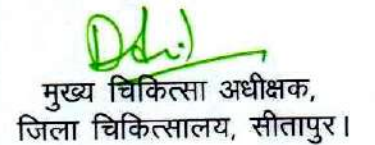 मुख्य चिकित्सा अधीक्षक,
जिला चिकित्सालय, सीतापुर।